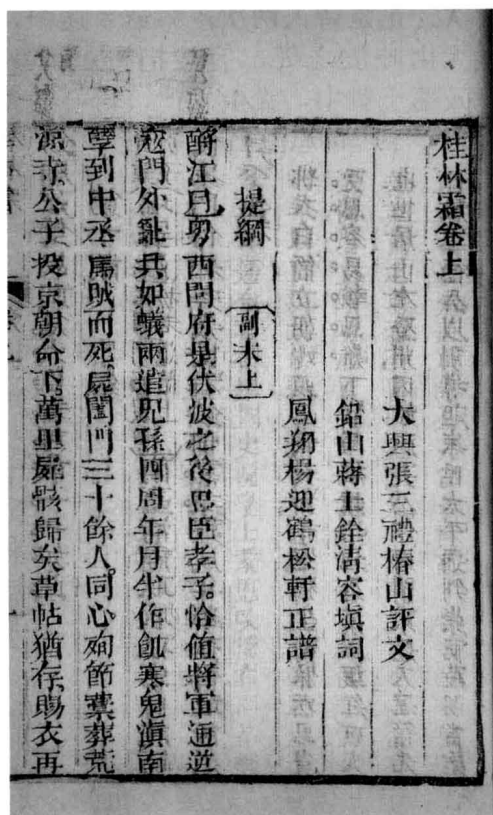 桂林霜卷上
大興張三禮椿山評文
鉛山蔣士銓清容塡詞
鳳翔楊迎鶴松軒正譜
提綱〔副末上〕
酹江月粵西開府是伏波之後忠臣孝子。恰值將軍通逆
寇門外亂兵如蟻兩遣兒孫四周年月半作飢寒鬼滇南
孽到中丞罵賊而死。屍闔門三十餘人。同心殉節藁葬荒
源寺。公子投京朝命下。萬里屍骸歸矣草帖猶存、賜衣再